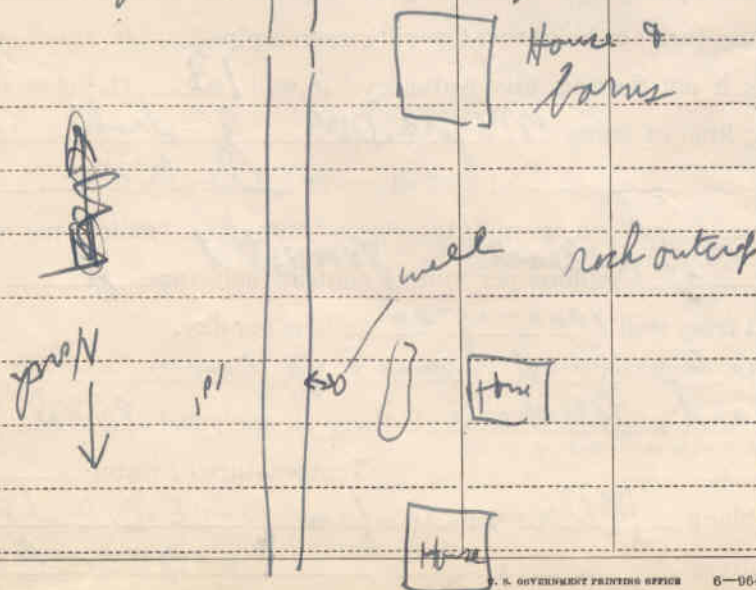 House &
barns
well
rock outcrop
North
House
House
U. S. GOVERNMENT PRINTING OFFICE 6—96